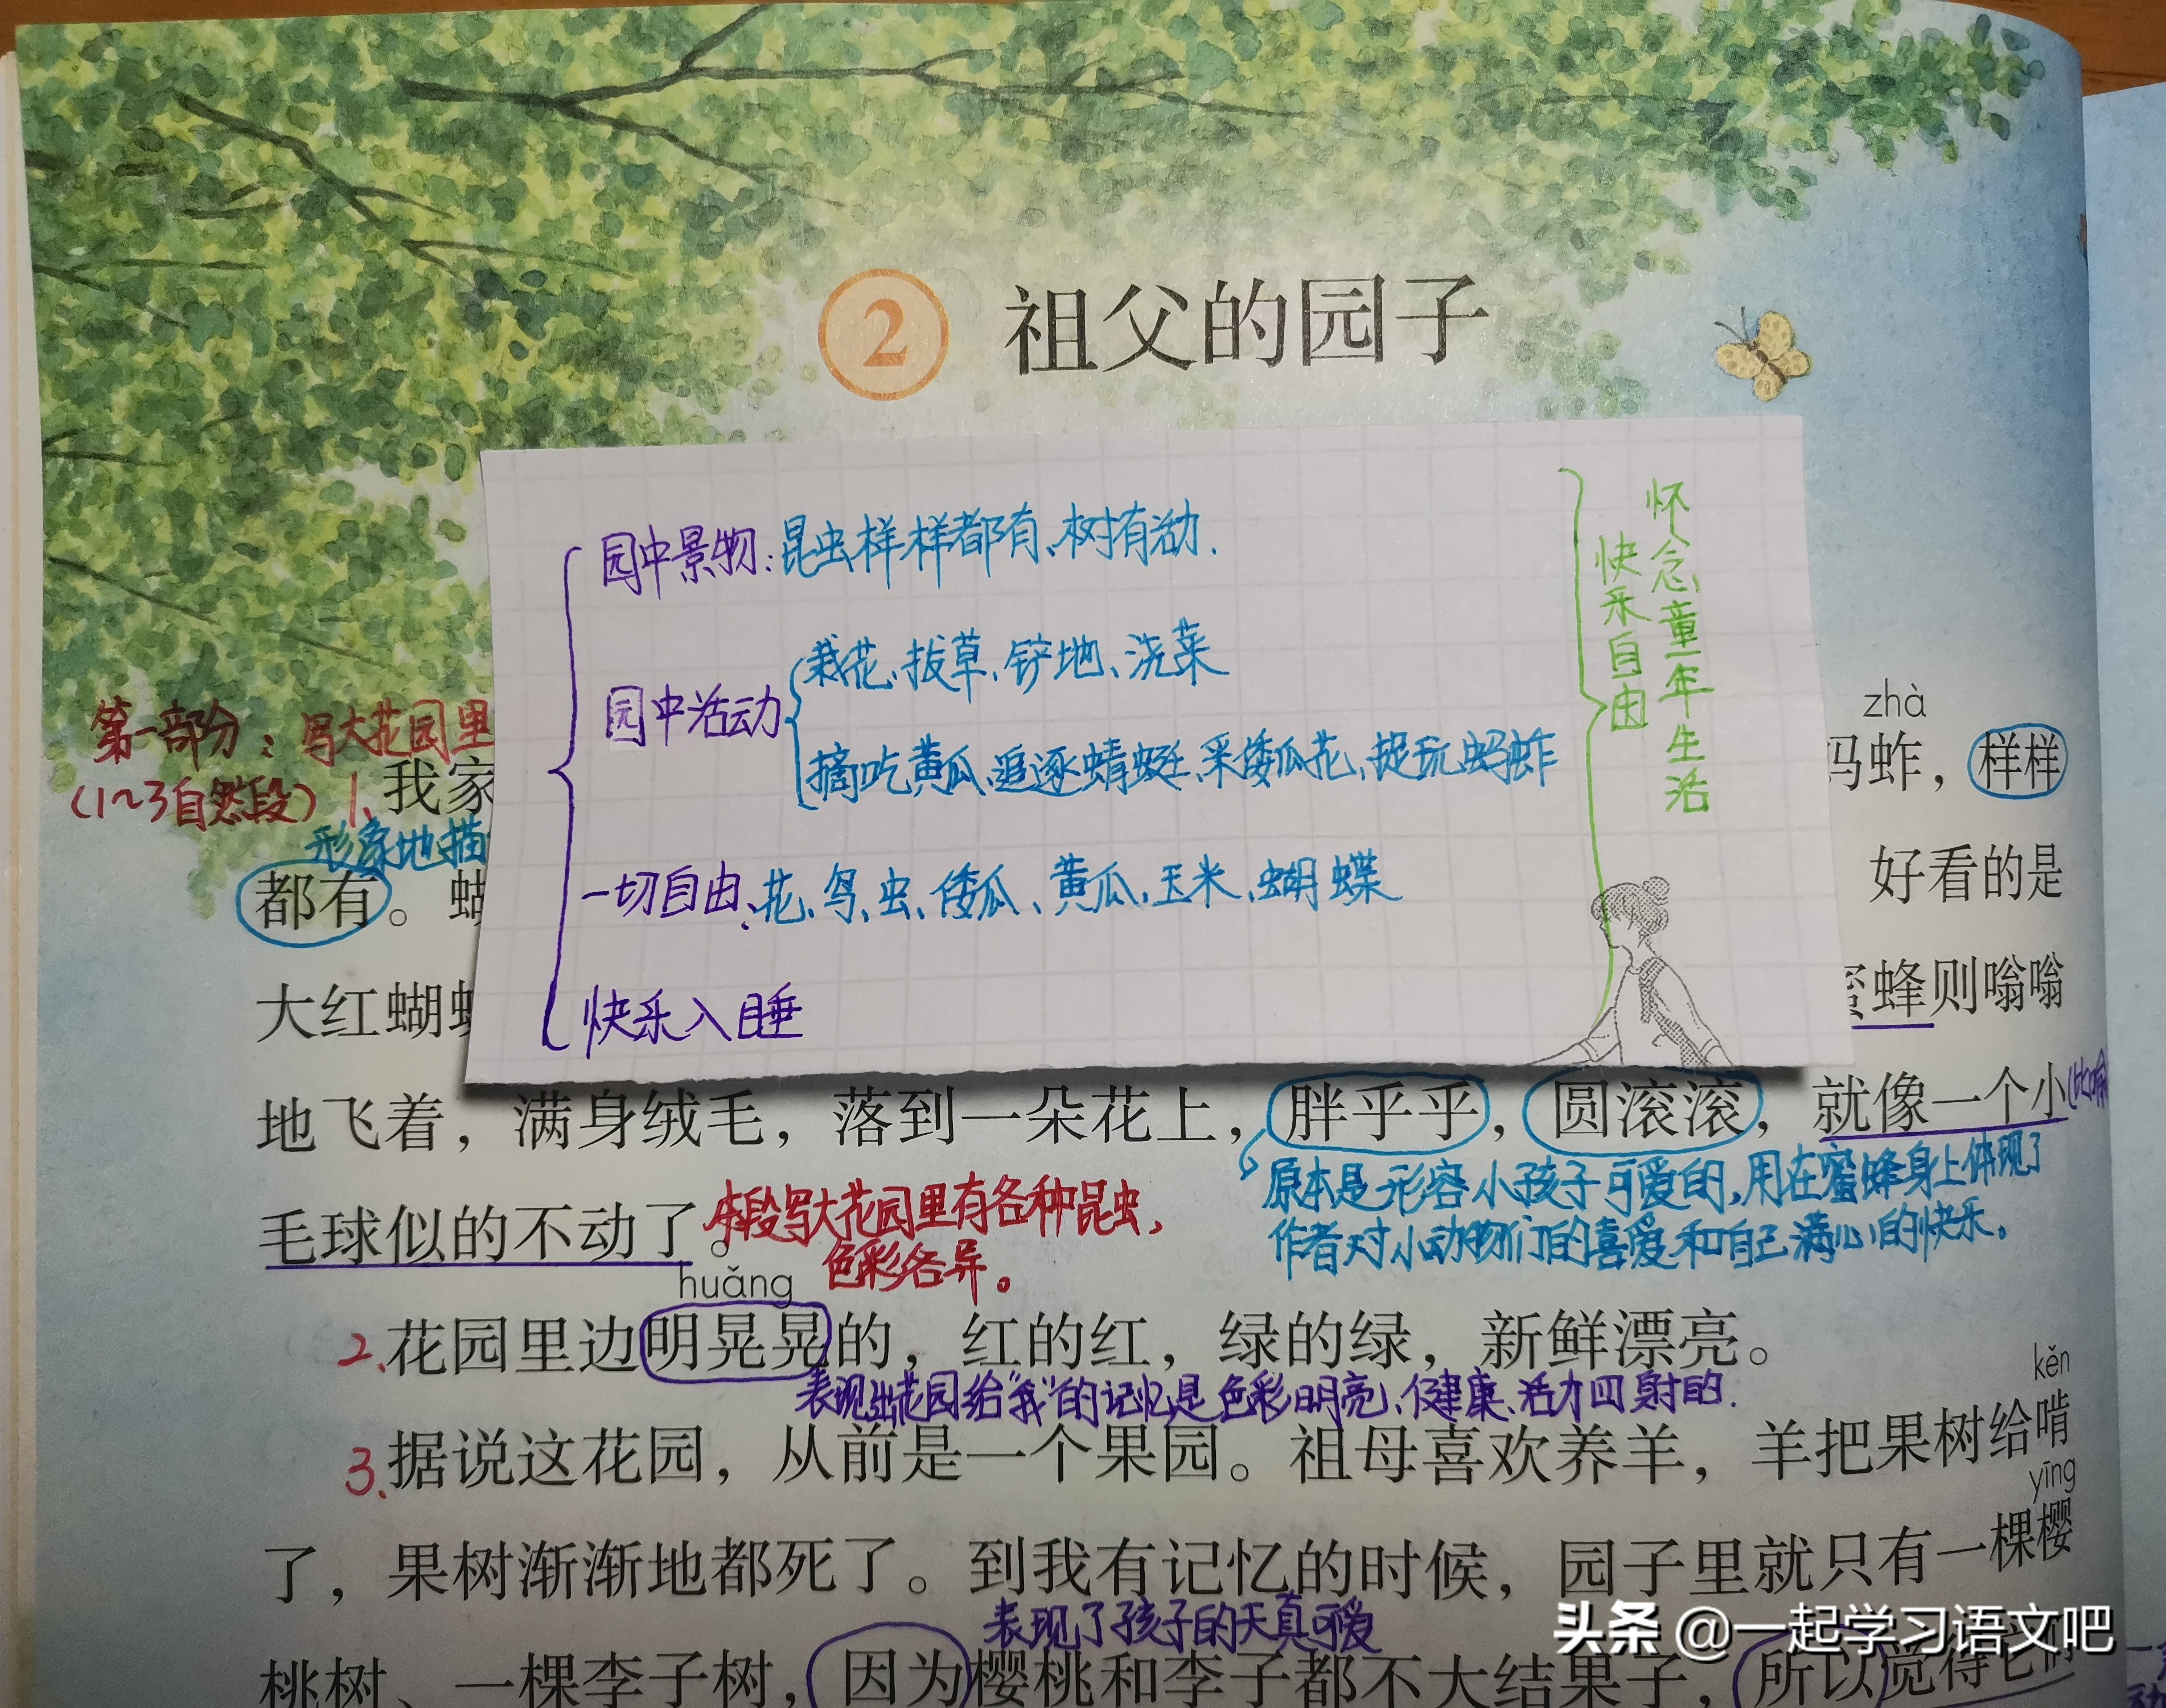 2 祖父的园子
园中景物：昆虫样样都有、树有动.
园中活动
栽花、拔草、铲地、浇菜
摘吃黄瓜、追逐蜻蜓、采倭瓜花、捉玩蚂蚱
一切自由、花、鸟、虫、倭瓜、黄瓜、玉米、蝴蝶
快乐入睡
快乐自由
怀念童年生活
第一部分：写大花园里
zhà
（1~3自然段）1、我家
蚂蚱，样样
形象地描
都有。
好看的是
大红蝴
蜂则嗡嗡
地飞着，满身绒毛，落到一朵花上，胖乎乎，圆滚滚，就像一个小
原本是形容小孩子可爱的，用在蜜蜂身上体现了
毛球似的不动了。本段写大花园里有各种昆虫，
作者对小动物们的喜爱和自己满心的快乐。
色彩各异。
huǎng
2、花园里边明晃晃的，红的红，绿的绿，新鲜漂亮。
表现出花园给“我”的记忆是色彩明亮、健康、活力四射的.
kěn
3、据说这花园，从前是一个果园。祖母喜欢养羊，羊把果树给啃
yīng
了，果树渐渐地都死了。到我有记忆的时候，园子里就只有一棵樱
表现了孩子的天真可爱
桃树、一棵李子树，因为樱桃和李子都不大结果子，所以觉得它们
头条 @一起学习语文吧